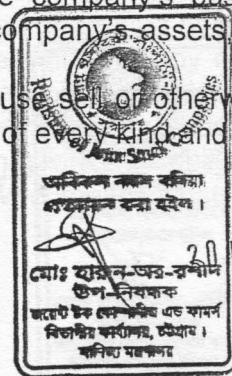 e company's bus
company's assets,
use, sell or otherw
of every kind and
Registrar of Joint Stock Companies
অবিকল নকল বলিয়া
প্রত্যয়ন করা হইল।
মোঃ হারুন-অর-রশীদ
উপ-নিবন্ধক
জয়েন্ট স্টক কোম্পানীজ এন্ড ফার্মস
বিভাগীয় কার্যালয়, চট্টগ্রাম।
বাণিজ্য মন্ত্রণালয়